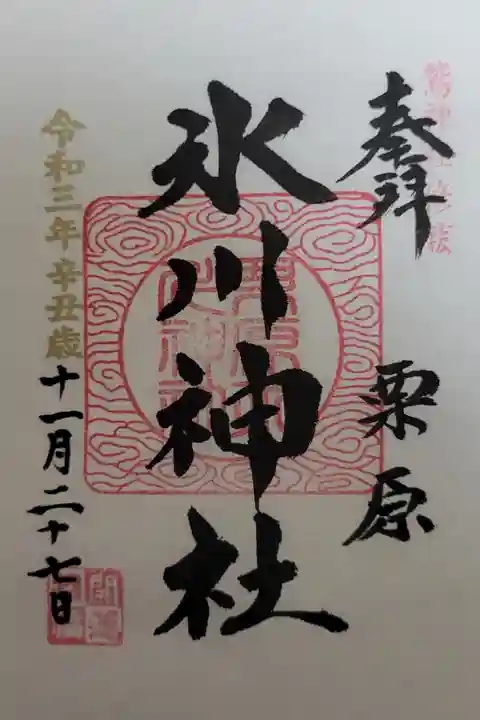 奉拝 栗原
氷川神社
令和三年辛丑歳
十一月二十七日